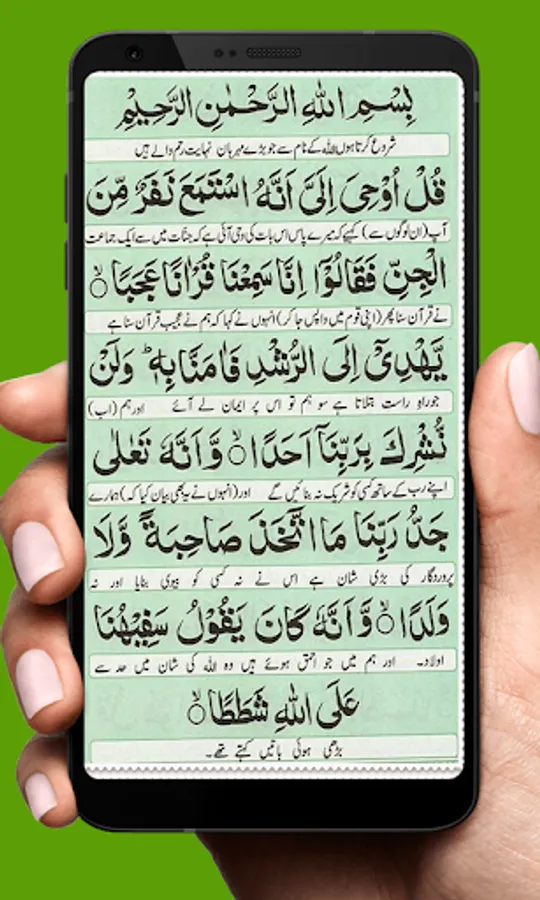 بِسْمِ اللهِ الرَّحْمٰنِ الرَّحِيْمِ
شروع کرتا ہوں اللہ کے نام سے جو بڑے مہربان نہایت رحم والے ہیں
قُلْ اُوْحِىَ اِلَىَّ اَنَّهُ اسْتَمَعَ نَفَرٌ مِّنَ
آپ (ان لوگوں سے) کہیے کہ میرے پاس اس بات کی وحی آئی ہے کہ جنات میں سے ایک جماعت
الْجِنِّ فَقَالُوْٓا اِنَّا سَمِعْنَا قُرْاٰنًا عَجَبًا ۙ
نے قرآن سنا پھر (اپنی قوم میں واپس جا کر) انہوں نے کہا کہ ہم نے عجیب قرآن سنا ہے
يَّهْدِىْٓ اِلَى الرُّشْدِ فَاٰمَنَّا بِهٖ ؕ وَلَنْ
جو راہ راست بتلاتا ہے سو ہم تو اس پر ایمان لے آئے اور ہم (اب)
نُّشْرِكَ بِرَبِّنَآ اَحَدًا ۙ وَّاَنَّهٗ تَعٰلٰى
اپنے رب کے ساتھ کسی کو شریک نہ بنائیں گے اور (انہوں نے یہ بھی بیان کیا کہ) ہمارے
جَدُّ رَبِّنَا مَا اتَّخَذَ صَاحِبَةً وَّلَا
پروردگار کی بڑی شان ہے اس نے نہ کسی کو بیوی بنایا اور نہ
وَلَدًا ۙ وَّاَنَّهٗ كَانَ يَقُوْلُ سَفِيْهُنَا
اولاد۔ اور ہم میں جو احمق ہوئے ہیں وہ اللہ کی شان میں حد سے
عَلَى اللهِ شَطَطًا ۙ
بڑھی ہوئی باتیں کہتے تھے۔